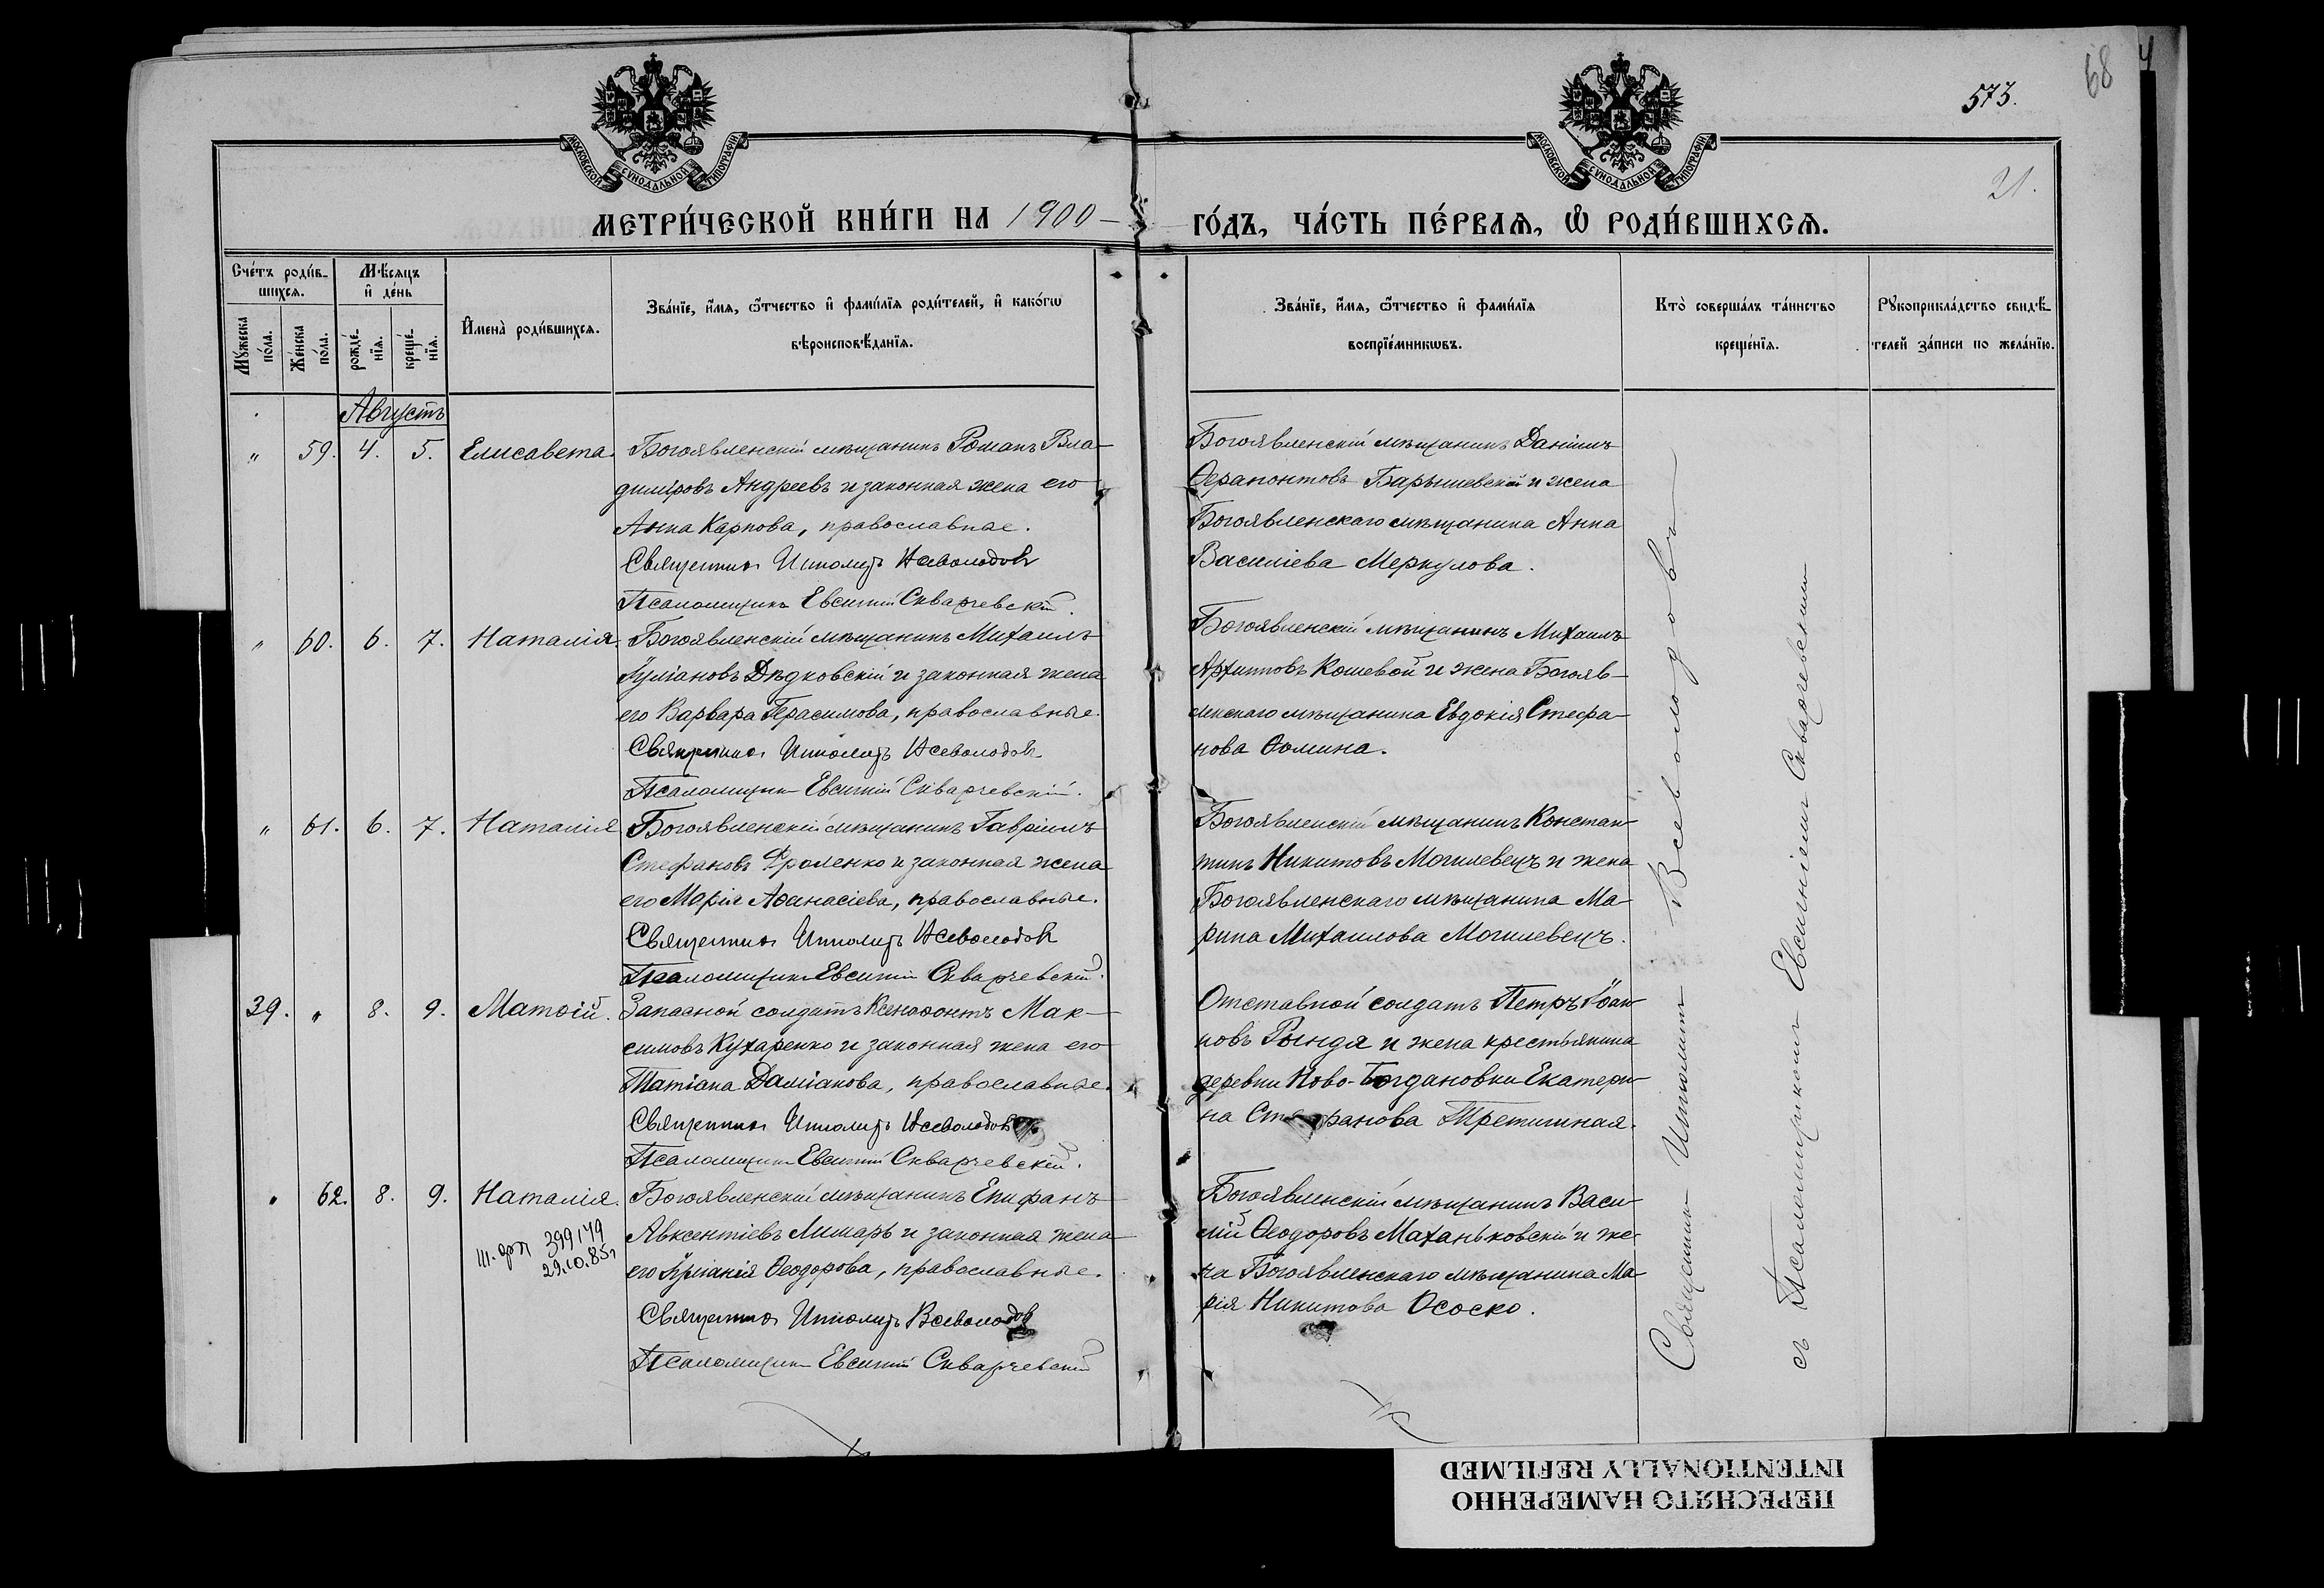 573.
68
4
21.
МОСКОВСКОЙ СѴНОДАЛЬНОЙ ТИПОГРАФІИ
МОСКОВСКОЙ СѴНОДАЛЬНОЙ ТИПОГРАФІИ
МЕТРИ́ЧЕСКОЙ КНИ́ГИ НА 1900 – ГО́ДЪ, ЧА́СТЬ ПЕ́РВАѦ, Ѡ҃ РОДИ́ВШИХСѦ.
Сче́тъ роди́в-
шихсѧ.
Мѣ́сѧцъ
и҆ де́нь
Мꙋ́жеска
по́ла.
Же́нска
по́ла.
рожде́-
нїѧ.
креще́-
нїѧ.
И҆мена̀ роди́вшихсѧ.
Зва́нїе, и҆́мѧ, ѻ҆́тчество и҆ фами́лїѧ роди́телей, и҆ како́гѡ
вѣроисповѣ́данїѧ.
Зва́нїе, и҆́мѧ, ѻ҆́тчество и҆ фами́лїѧ
воспрїе́мникѡвъ.
Кто̀ соверша́лъ та́инство
креще́нїѧ.
Рꙋкоприкла́дство свидѣ́-
телей за́писи по жела́нїю.
Августъ
" 59. 4. 5. Елисавета. Богоявленскій мѣщанинъ Романъ Вла-
диміровъ Андреевъ и законная жена его
Анна Карпова, православные.
Священникъ Ипполитъ Всеволодовъ
Псаломщикъ Евсигній Скварчевскій.
Богоявленскій мѣщанинъ Даніилъ
Ѳерапонтовъ Барышевскій и жена
Богоявленскаго мѣщанина Анна
Василіева Меркулова.
" 60. 6. 7. Наталія. Богоявленскій мѣщанинъ Михаилъ
Іуліановъ Дѣдковскій и законная жена
его Варвара Герасимова, православные.
Священникъ Ипполитъ Всеволодовъ
Псаломщикъ Евсигній Скварчевскій.
Богоявленскій мѣщанинъ Михаилъ
Архиповъ Кошевой и жена Богояв-
ленскаго мѣщанина Евдокія Стефа-
нова Ѳомина.
" 61. 6. 7. Наталія Богоявленскій мѣщанинъ Гавріилъ
Стефановъ Фроленко и законная жена
его Марія Аѳанасіева, православные.
Священникъ Ипполитъ Всеволодовъ
Псаломщикъ Евсигній Скварчевскій.
Богоявленскій мѣщанинъ Констан-
тинъ Никитовъ Могилевецъ и жена
Богоявленскаго мѣщанина Ма-
рина Михаилова Могилевецъ.
39. " 8. 9. Матѳій. Запасной солдатъ Ксенофонтъ Мак-
симовъ Кухаренко и законная жена его
Татіана Даміанова, православные.
Священникъ Ипполитъ Всеволодовъ
Псаломщикъ Евсигній Скварчевскій.
Отставной солдатъ Петръ Іоан-
новъ Рында и жена крестьянина
деревни Ново-Богдановки Екатери-
на Стефанова Третишная.
" 62. 8. 9. Наталія. Богоявленскій мѣщанинъ Епифанъ
Авксентіевъ Лимарь и законная жена
его Іуліанія Ѳеодорова, православные.
Священникъ Ипполитъ Всеволодовъ
Псаломщикъ Евсигній Скварчевскій
399149
29.10.85г
Богоявленскій мѣщанинъ Васи-
лій Ѳеодоровъ Маханьковскій и же-
на Богоявленскаго мѣщанина Ма-
рія Никитова Ососко.
Священникъ Ипполитъ Всеволодовъ
съ Псаломщикомъ Евсигніемъ Скварчевскимъ
ПЕРЕСНЯТО НАМЕРЕННО
INTENTIONALLY REFILMED